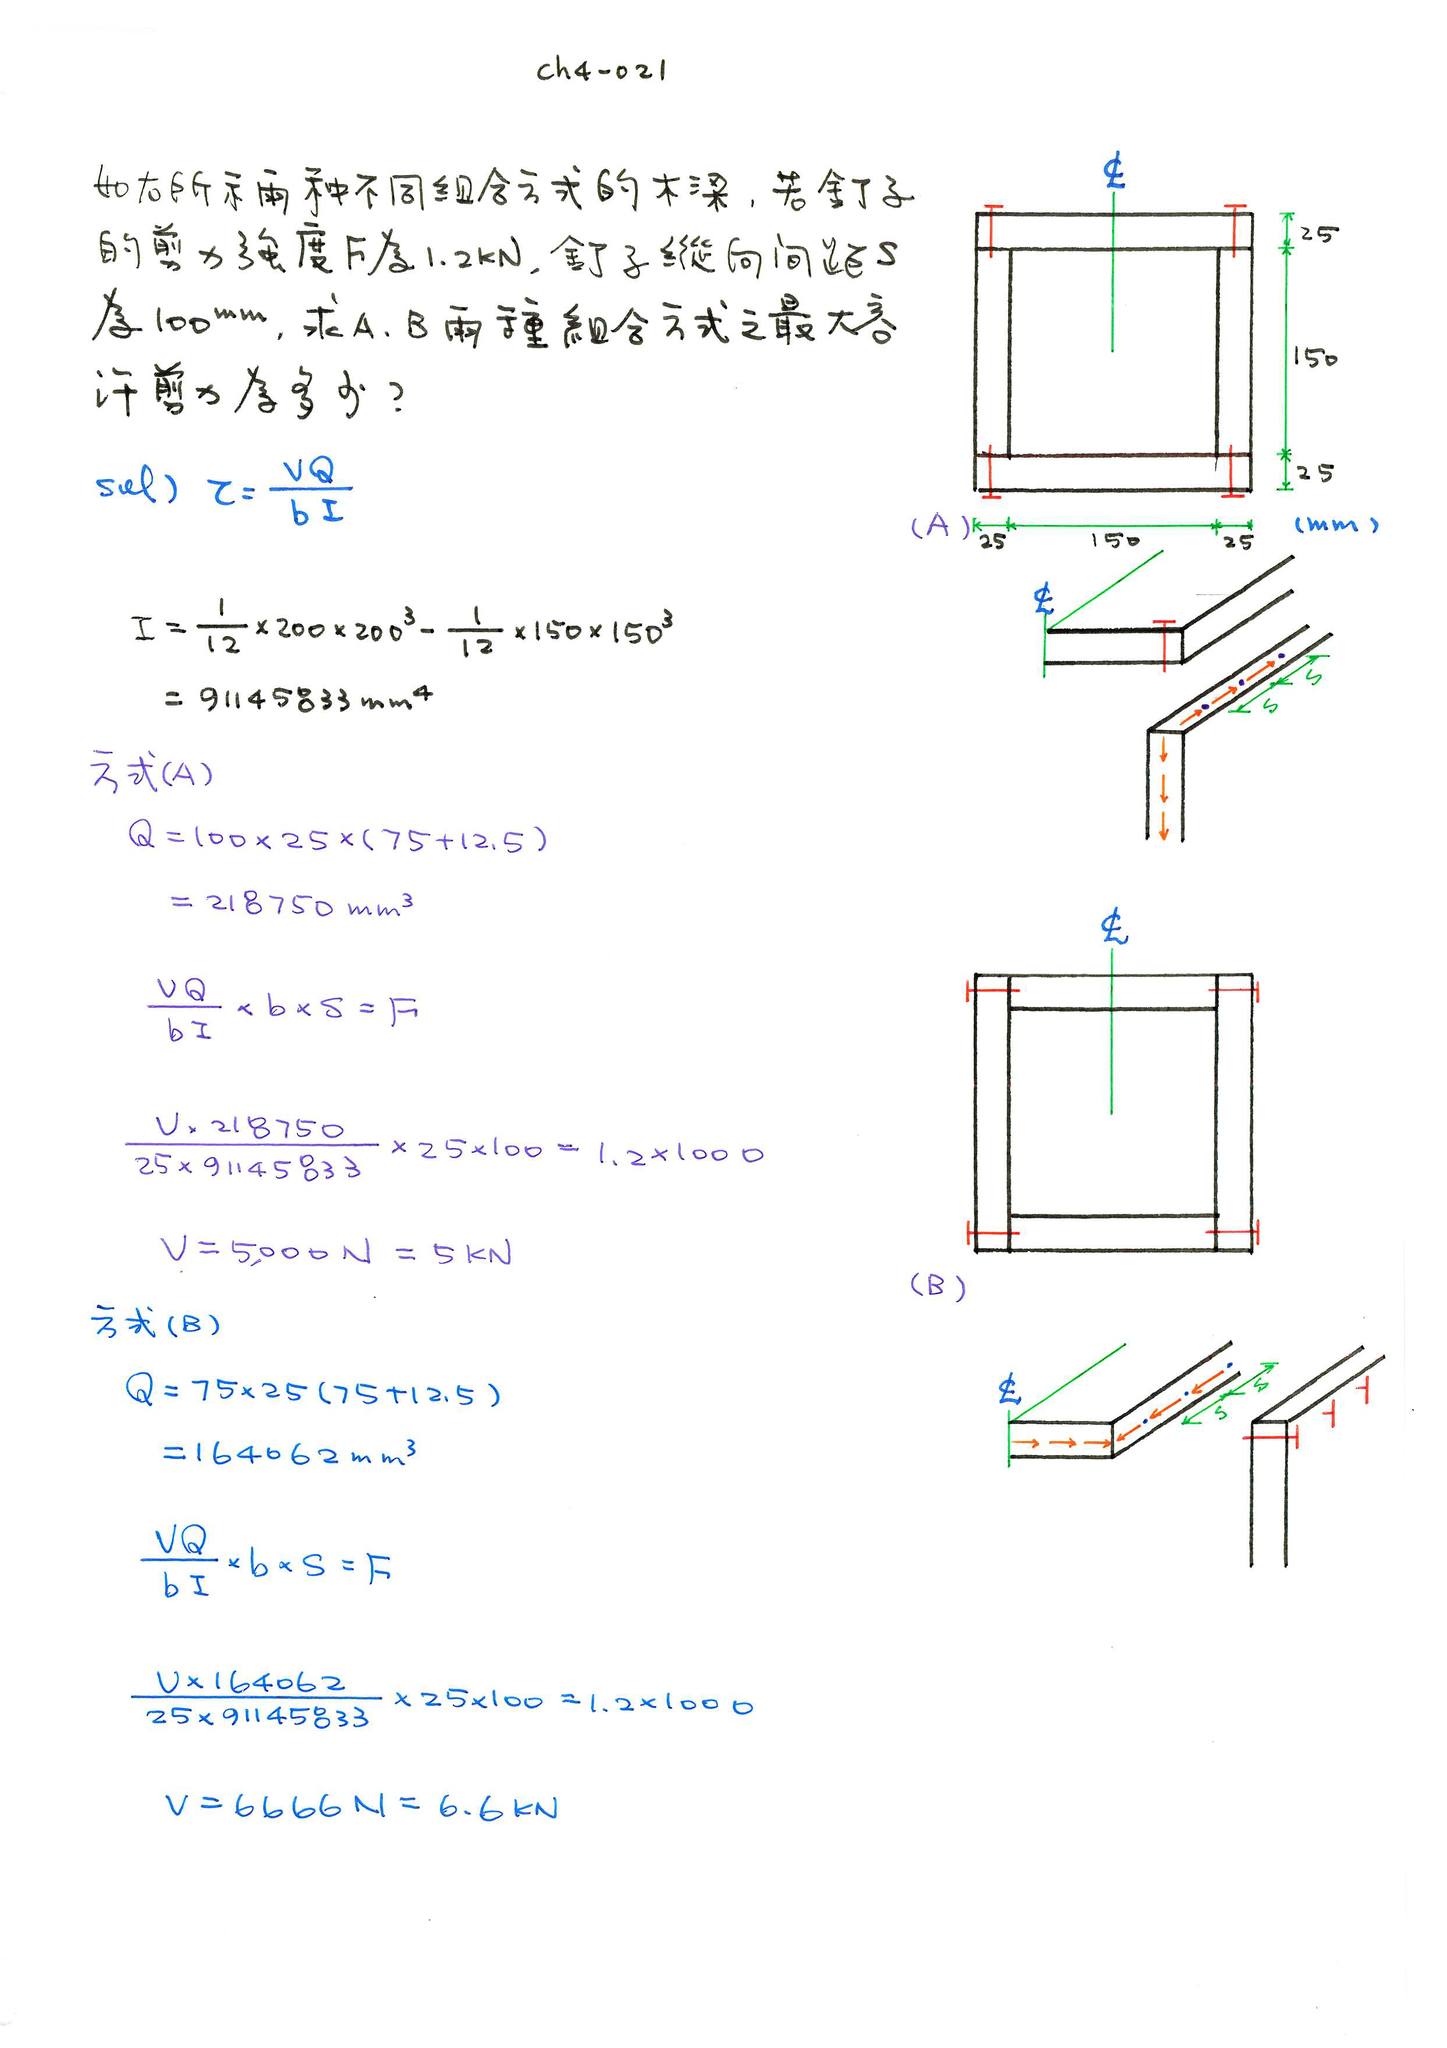 ch4-021
如右所示兩種不同組合方式的木梁,若釘子
的剪力強度F為1.2kN,釘子縱向间距S
為100mm,求A.B兩種組合方式之最大容
許剪力為多少?
sol) τ= VQ / bI
I = 1/12 ×200×200³ - 1/12 ×150×150³
= 91145833 mm⁴
方式(A)
Q=100×25×(75+12.5)
= 218750 mm³
VQ / bI × b × S = F
V × 218750 / 25×91145833 × 25×100 = 1.2×1000
V = 5,000 N = 5 kN
方式(B)
Q = 75×25(75+12.5)
= 164062 mm³
VQ / bI × b × S = F
V×164062 / 25×91145833 × 25×100 = 1.2×1000
V = 6666 N = 6.6 kN
℄
25
150
25
(A)
25
150
25
(mm)
℄
S
S
℄
(B)
℄
S
S